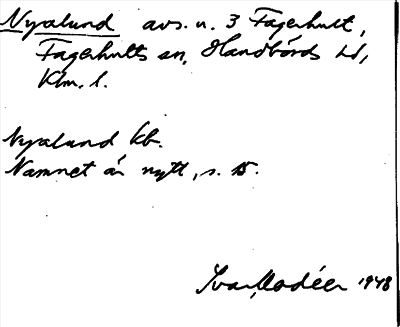 Nyalund avs. u. 3 Fagerhult,
Fagerhults sn, Handbörds hd,
Klm. l.
Nyalund kb.
Namnet är nytt, s. B.
Ivar Modéer 1948